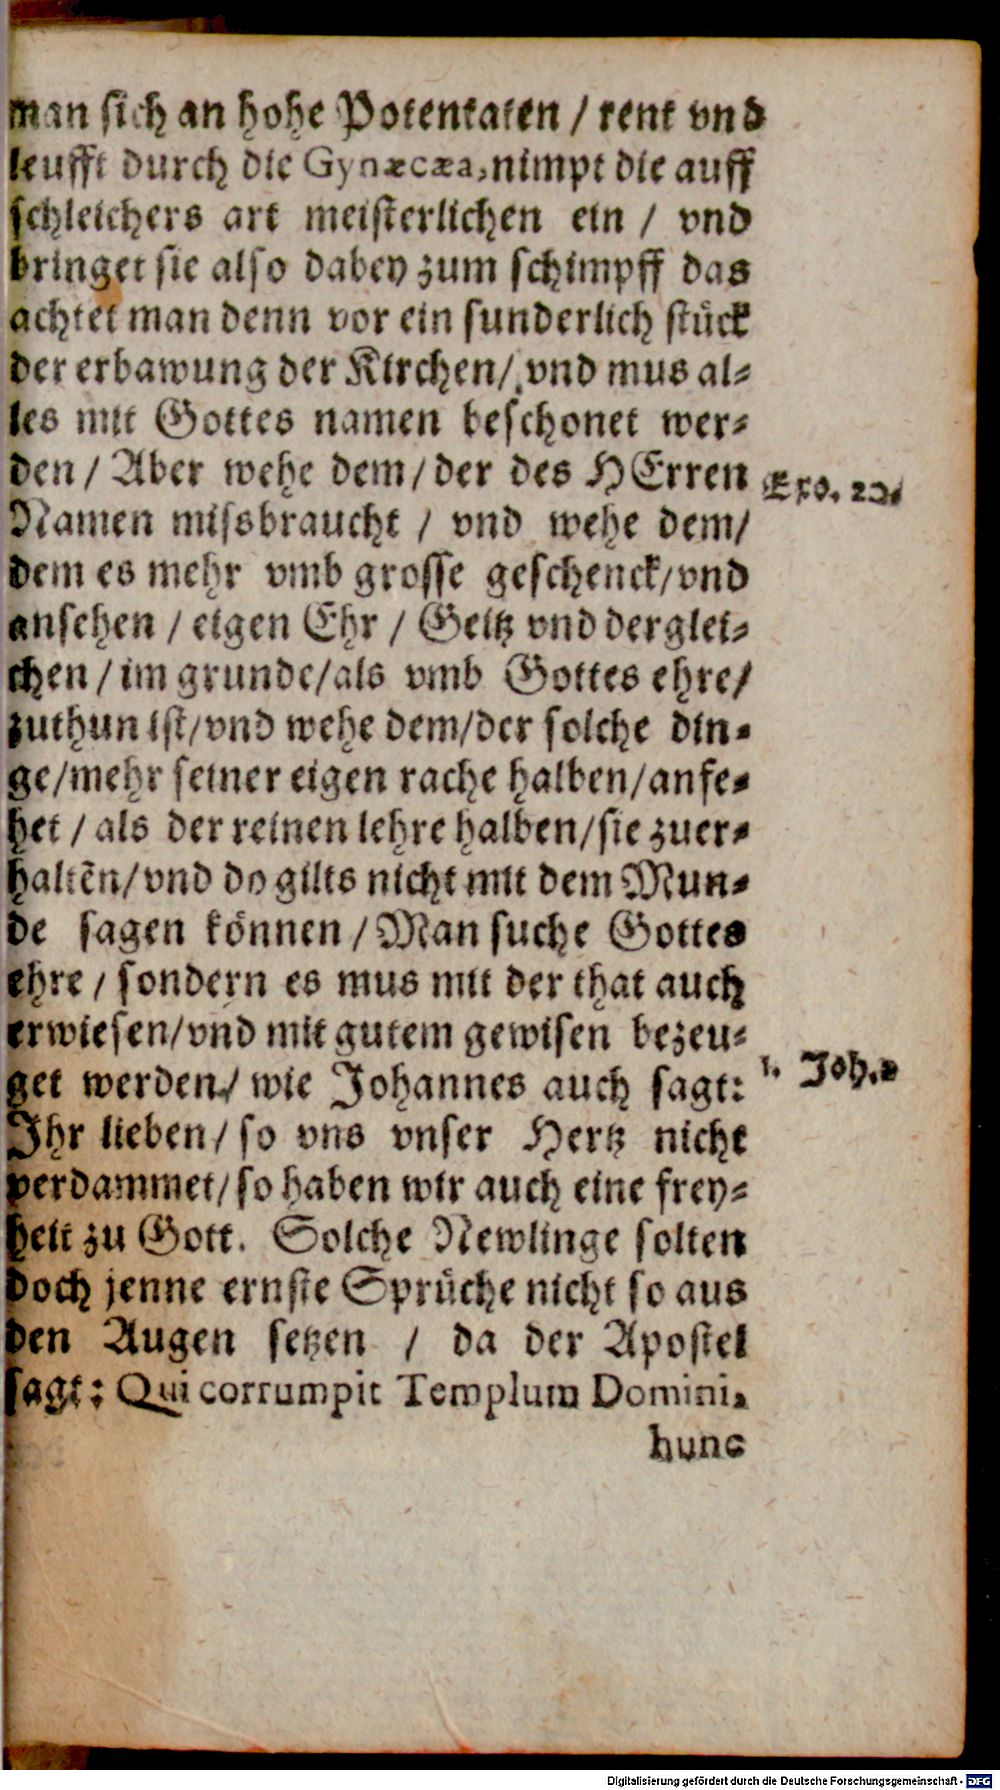 man sich an hohe Potentaten / rent vnd
leufft durch die Gynæcæa, nimpt die auff
schleichers art meisterlichen ein / vnd
bringet sie also dabey zum schimpff das
achtet man denn vor ein sunderlich stück
der erbawung der Kirchen / vnd mus al⸗
les mit Gottes namen beschonet wer⸗
den / Aber wehe dem / der des HErren
Exo. 20.
Namen missbraucht / vnd wehe dem /
dem es mehr vmb grosse geschenck / vnd
ansehen / eigen Ehr / Geitz vnd derglei⸗
chen / im grunde / als vmb Gottes ehre /
zuthun ist / vnd wehe dem / der solche din⸗
ge / mehr seiner eigen rache halben / anfe⸗
het / als der reinen lehre halben / sie zuer⸗
haltẽn / vnd do gilts nicht mit dem Mun⸗
de sagen können / Man suche Gottes
ehre / sondern es mus mit der that auch
erwiesen / vnd mit gutem gewisen bezeu⸗
get werden / wie Johannes auch sagt:
1. Joh.
Ihr lieben / so vns vnser Hertz nicht
verdammet / so haben wir auch eine frey⸗
heit zu Gott. Solche Newlinge solten
doch jenne ernste Sprüche nicht so aus
den Augen setzen / da der Apostel
sagt: Qui corrumpit Templum Domini,
hunc
Digitalisierung gefördert durch die Deutsche Forschungsgemeinschaft - DFG